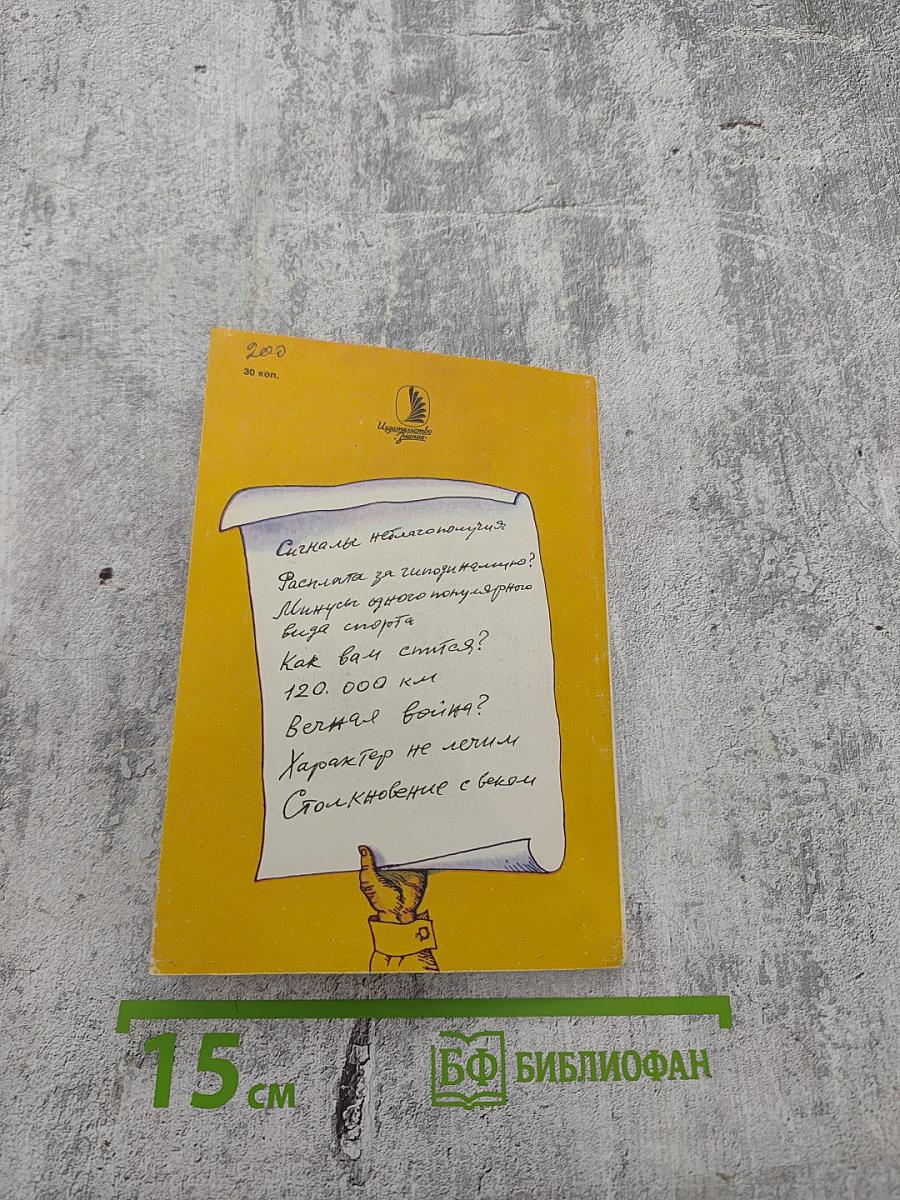 200
30 коп.
Издательство
«Знание»
Сигналы неблагополучия
Расплата за гиподинамию?
Минусы одного популярного
вида спорта
Как вам спится?
120.000 км
Вечная война?
Характер не лечим
Столкновение с веком
15 см
БФ БИБЛИОФАН